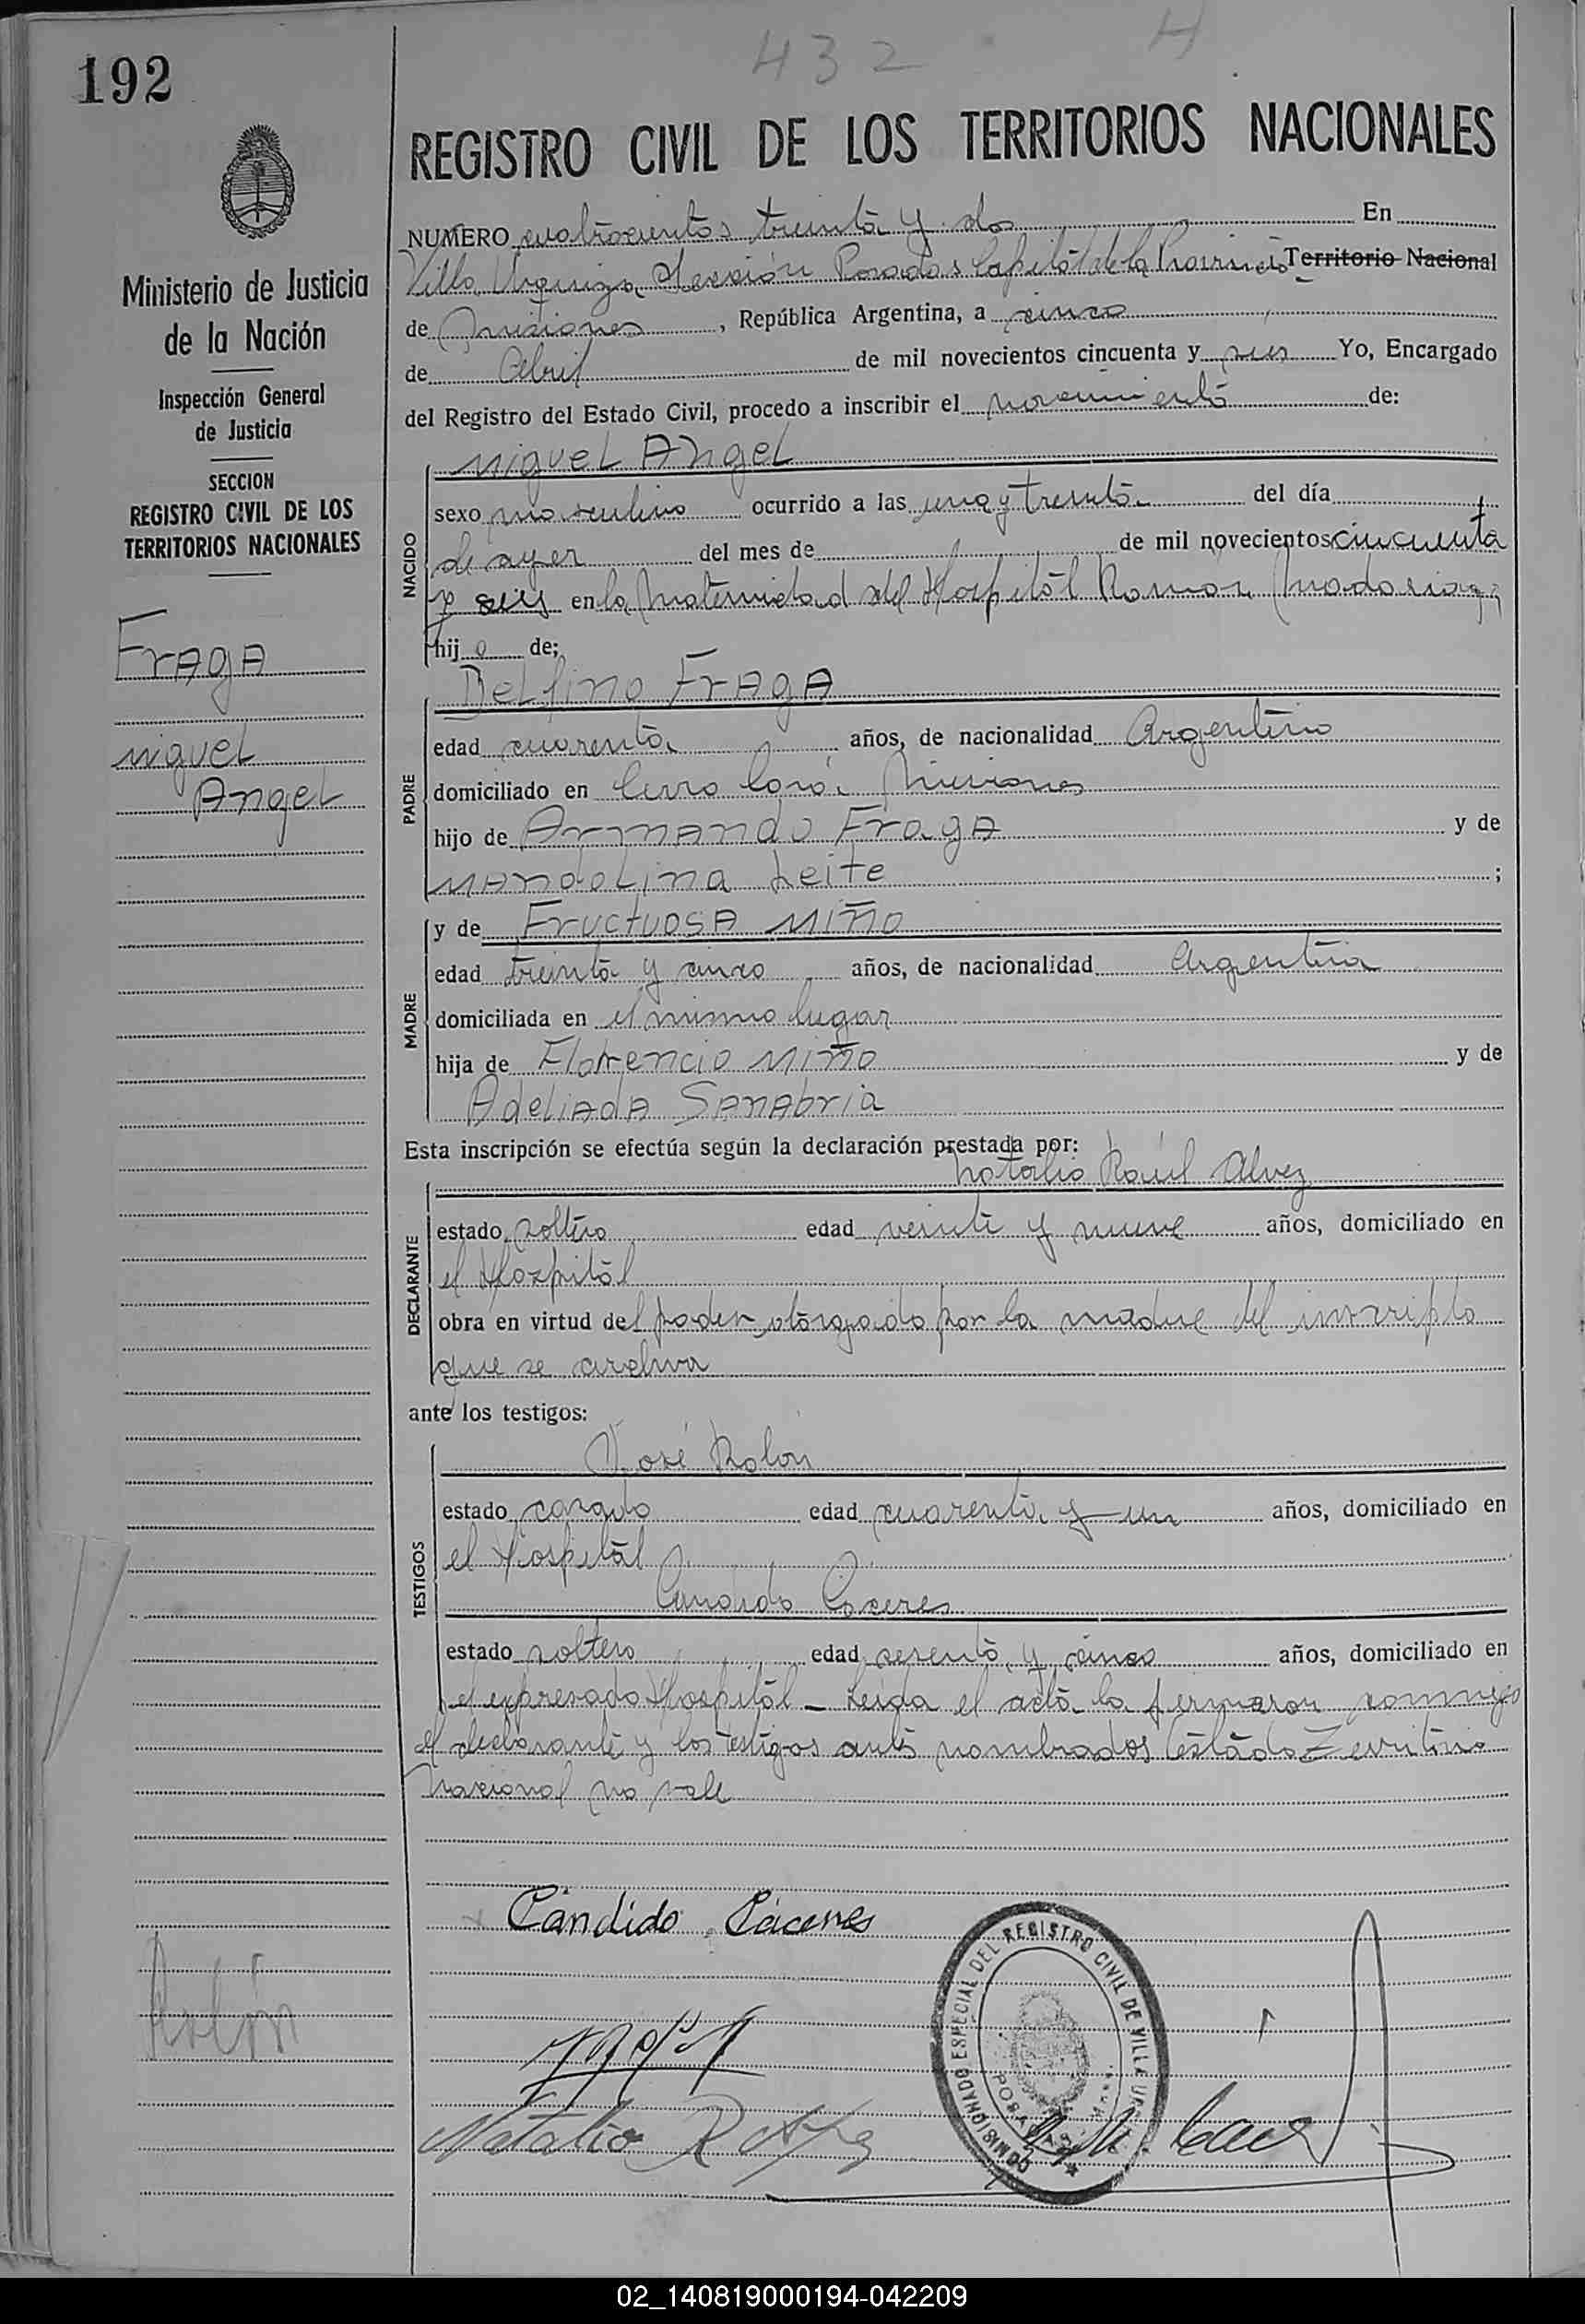 192
432 H
REGISTRO CIVIL DE LOS TERRITORIOS NACIONALES
Ministerio de Justicia
de la Nación
Inspección General
de Justicia
SECCION
REGISTRO CIVIL DE LOS
TERRITORIOS NACIONALES
Fraga
Miguel
Angel
NUMERO cuatrocientos treinta y dos En
Villa Urquiza Sección Posadas Capital de la Provincia Territorio Nacional
de Misiones, República Argentina, a cinco
de Abril de mil novecientos cincuenta y seis Yo, Encargado
del Registro del Estado Civil, procedo a inscribir el nacimiento de:
NACIDO
Miguel Angel
sexo masculino ocurrido a las una y treinta del día
de ayer del mes de de mil novecientos cincuenta
y seis en la Maternidad del Hospital Ramón Madariaga
hijo de;
PADRE
Delfino Fraga
edad cuarenta años, de nacionalidad Argentino
domiciliado en Cerro Corá Misiones
hijo de Armando Fraga y de
Mandolina Leite ;
MADRE
y de Fructuosa Miño
edad treinta y cinco años, de nacionalidad Argentina
domiciliada en el mismo lugar
hija de Florencio Miño y de
Adeliada Sanabria
Esta inscripción se efectúa según la declaración prestada por:
DECLARANTE
Natalio Raúl Alvez
estado soltero edad veinte y nueve años, domiciliado en
el Hospital
obra en virtud del poder otorgado por la madre del inscripto
que se archiva
ante los testigos:
TESTIGOS
José Rolón
estado casado edad cuarenta y un años, domiciliado en
el Hospital
Cándido Cáceres
estado soltero edad sesenta y cinco años, domiciliado en
el expresado Hospital - Leída el acta la firmaron conmigo
el declarante y los testigos antes nombrados Testado Territorio
Nacional no vale
Cándido Cáceres
Rolón
Natalio R
COMISIONADO ESPECIAL DEL REGISTRO CIVIL DE VILLA
POSADAS
02_140819000194-042209